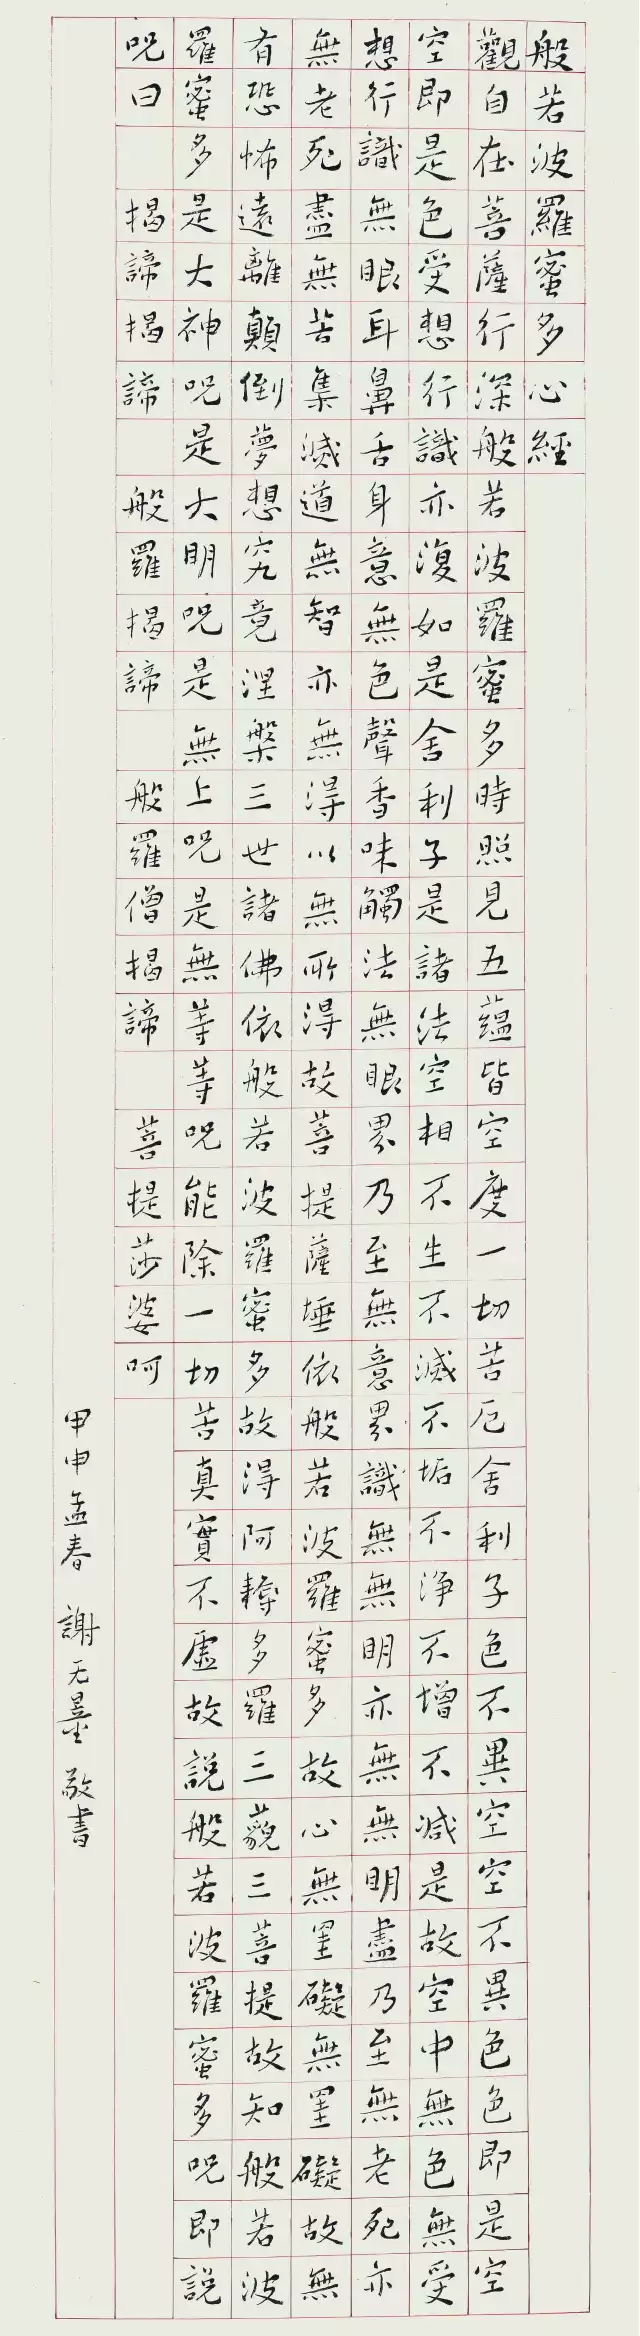 般若波羅蜜多心經
觀自在菩薩行深般若波羅蜜多時照見五蘊皆空度一切苦厄舍利子色不異空空不異色色即是空
空即是色受想行識亦復如是舍利子是諸法空相不生不滅不垢不淨不增不減是故空中無色無受
想行識無眼耳鼻舌身意無色聲香味觸法無眼界乃至無意界識無無明亦無無明盡乃至無老死亦
無老死盡無苦集滅道無智亦無得以無所得故菩提薩埵依般若波羅蜜多故心無罣礙無罣礙故無
有恐怖遠離顛倒夢想究竟涅槃三世諸佛依般若波羅蜜多故得阿耨多羅三藐三菩提故知般若波
羅蜜多是大神咒是大明咒是無上咒是無等等咒能除一切苦真實不虛故說般若波羅蜜多咒即說
咒曰 揭諦揭諦 般羅揭諦 般羅僧揭諦 菩提莎婆呵
甲申孟春 謝无量 敬書